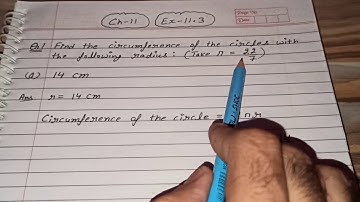 Ch-11 Ex-11.3
Q1 Find the circumference of the circles with
the following radius: (Take π = 22/7)
(a) 14 cm
Ans r = 14 cm
Circumference of the circle = πr